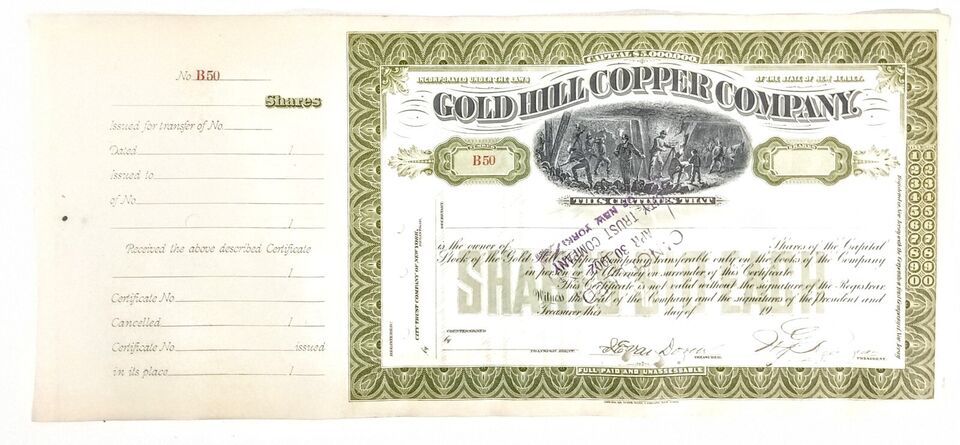 No B50
Shares
Issued for transfer of No
Dated 1
issued to
of No
1
Received the above described Certificate
1
Certificate No
Cancelled 1
Certificate No issued
in its place 1
CAPITAL $5,000,000.
INCORPORATED UNDER THE LAWS OF THE STATE OF NEW JERSEY.
GOLD HILL COPPER COMPANY.
NUMBER
B50
SHARES
THIS CERTIFIES THAT
is the owner of Shares of the Capital
Stock of the Gold Hill Copper Company transferable only on the books of the Company
in person or by Attorney on surrender of this Certificate
This Certificate is not valid without the signature of the Registrar
Witness the Seal of the Company and the signatures of the President and
Treasurer this day of 19
SHARES EACH
CITY TRUST COMPANY
OF NEW YORK
APR 30 1902
REGISTERED:
CITY TRUST COMPANY OF NEW YORK,
REGISTRAR.
By
SECRETARY.
COUNTERSIGNED
by
TRANSFER AGENT.
TREASURER.
PRESIDENT.
FULL PAID AND UNASSESSABLE
11
22
33
44
55
66
77
88
99
00